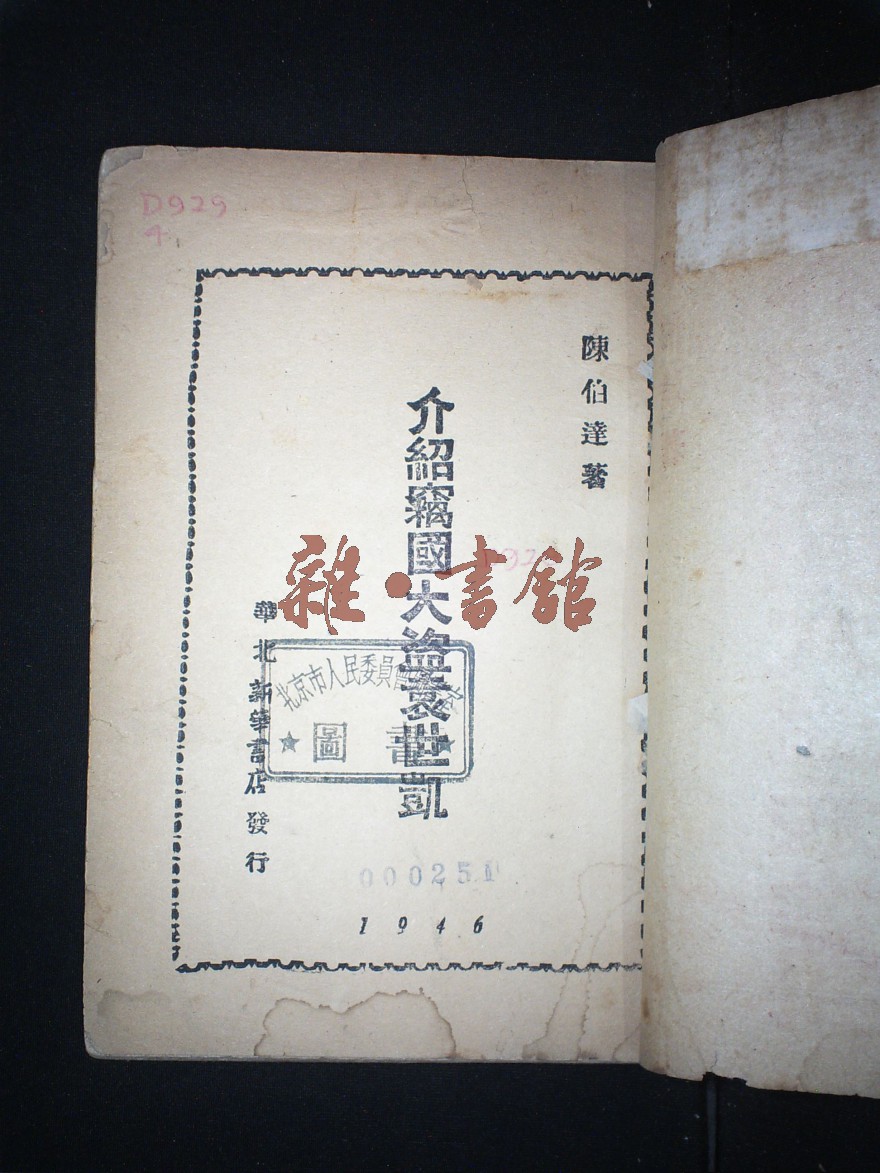 D929
4
陳伯達著
介紹竊國大盜袁世凱
華北新華書店發行
雜·書館
北京市人民委員會
圖書
000251
1946